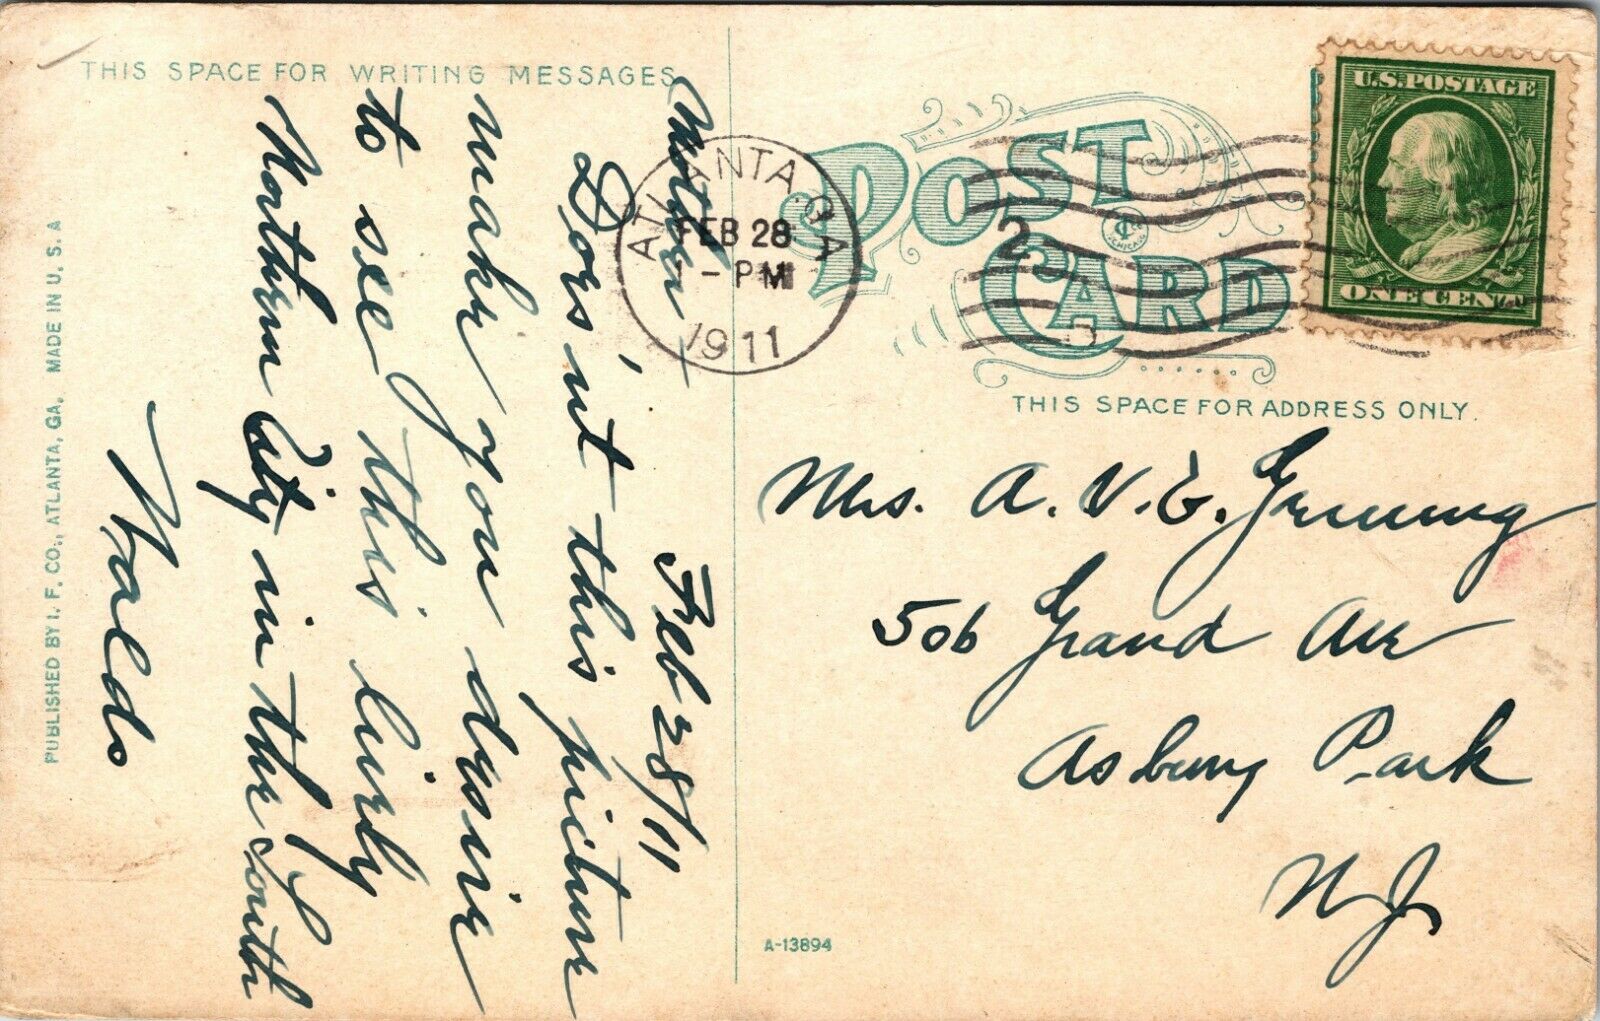 THIS SPACE FOR WRITING MESSAGES
Mother
Feb 28/11
Does'nt this picture
make you desire
to see this lively
Northern City in the South
Waldo
PUBLISHED BY I. F. CO., ATLANTA, GA. MADE IN U. S. A
ATLANTA, GA
FEB 28
- PM
1911
POST
CARD
THIS SPACE FOR ADDRESS ONLY.
U.S. POSTAGE
ONE CENT
Mrs. A. V. E. Gruning
506 Grand Ave
Asbury Park
N J
A-13894